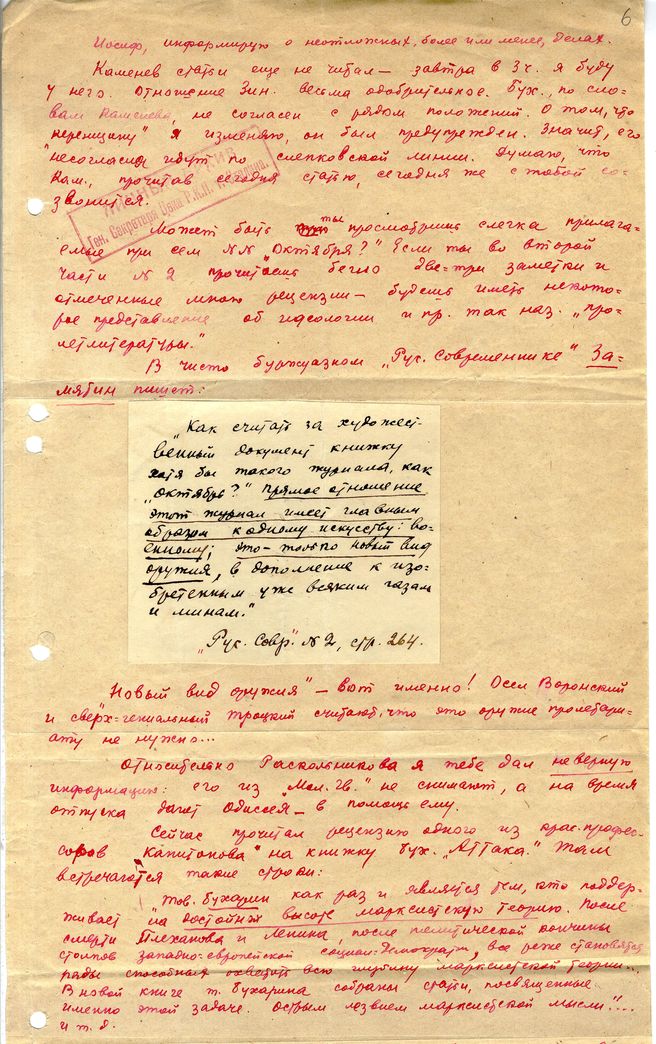 6
Иосиф, информирую о неотложных, более или менее, делах.
Каменев статьи еще не читал — завтра в 3 ч. я буду
у него. Отношение Зин. весьма одобрительное. Бух., по сло-
вам Каменева, не согласен с рядом положений. О том, что
я изменяю, он был предупрежден. Значит, его
"несогласия" идут по слепковской линии. Думаю, что
Кам., прочитав сегодня статью, сегодня же с тобой со-
звонится.
АРХИВ
Ген. Секретаря Цека Р.К.П.
Может быть ты просмотришь слегка прилага-
емые при сем NN "Октября?" Если ты во второй
части N 2 прочитаешь бегло две-три заметки и
отмеченные мною рецензии — будешь иметь некото-
рое представление об идеологии и пр. так наз. "про-
летлитературы."
В чисто буржуазном "Рус. Современнике" За-
мятин пишет:
"Как считать за художест-
венный документ книжку
хотя бы такого журнала, как
"Октябрь?" Прямое отношение
этот журнал имеет главным
образом к одному искусству: во-
енному; это — только новый вид
оружия, в дополнение к изо-
бретенным уже всяким газам
и минам."
"Рус. Совр." N 2, стр. 264.
Новый вид оружия" — вот именно! Осел Воронский
и сверх-гениальный Троцкий считают, что это оружие пролетари-
ату не нужно...
Относительно Раскольникова я тебе дал неверную
информацию: его из "Мол. Гв." не снимают, а на время
отпуска дают Одиссея — в помощь ему.
Сейчас прочитал рецензию одного из крас. професс-
соров "Капитонова" на книжку Бух. "Аттака." Там
встречаются такие строки:
"Тов. Бухарин как раз и является тем, кто поддер-
живает на достойных высоте марксистскую теорию. После
смерти Плеханова и Ленина, после политической кончины
столпов западно-европейской социал-демократии, все реже становятся
ряды способных осветить всю глубину марксистской теории...
В новой книге т. Бухарина собраны статьи, посвященные
именно этой задаче. Острым лезвием марксистской мысли"!...
и т. д.